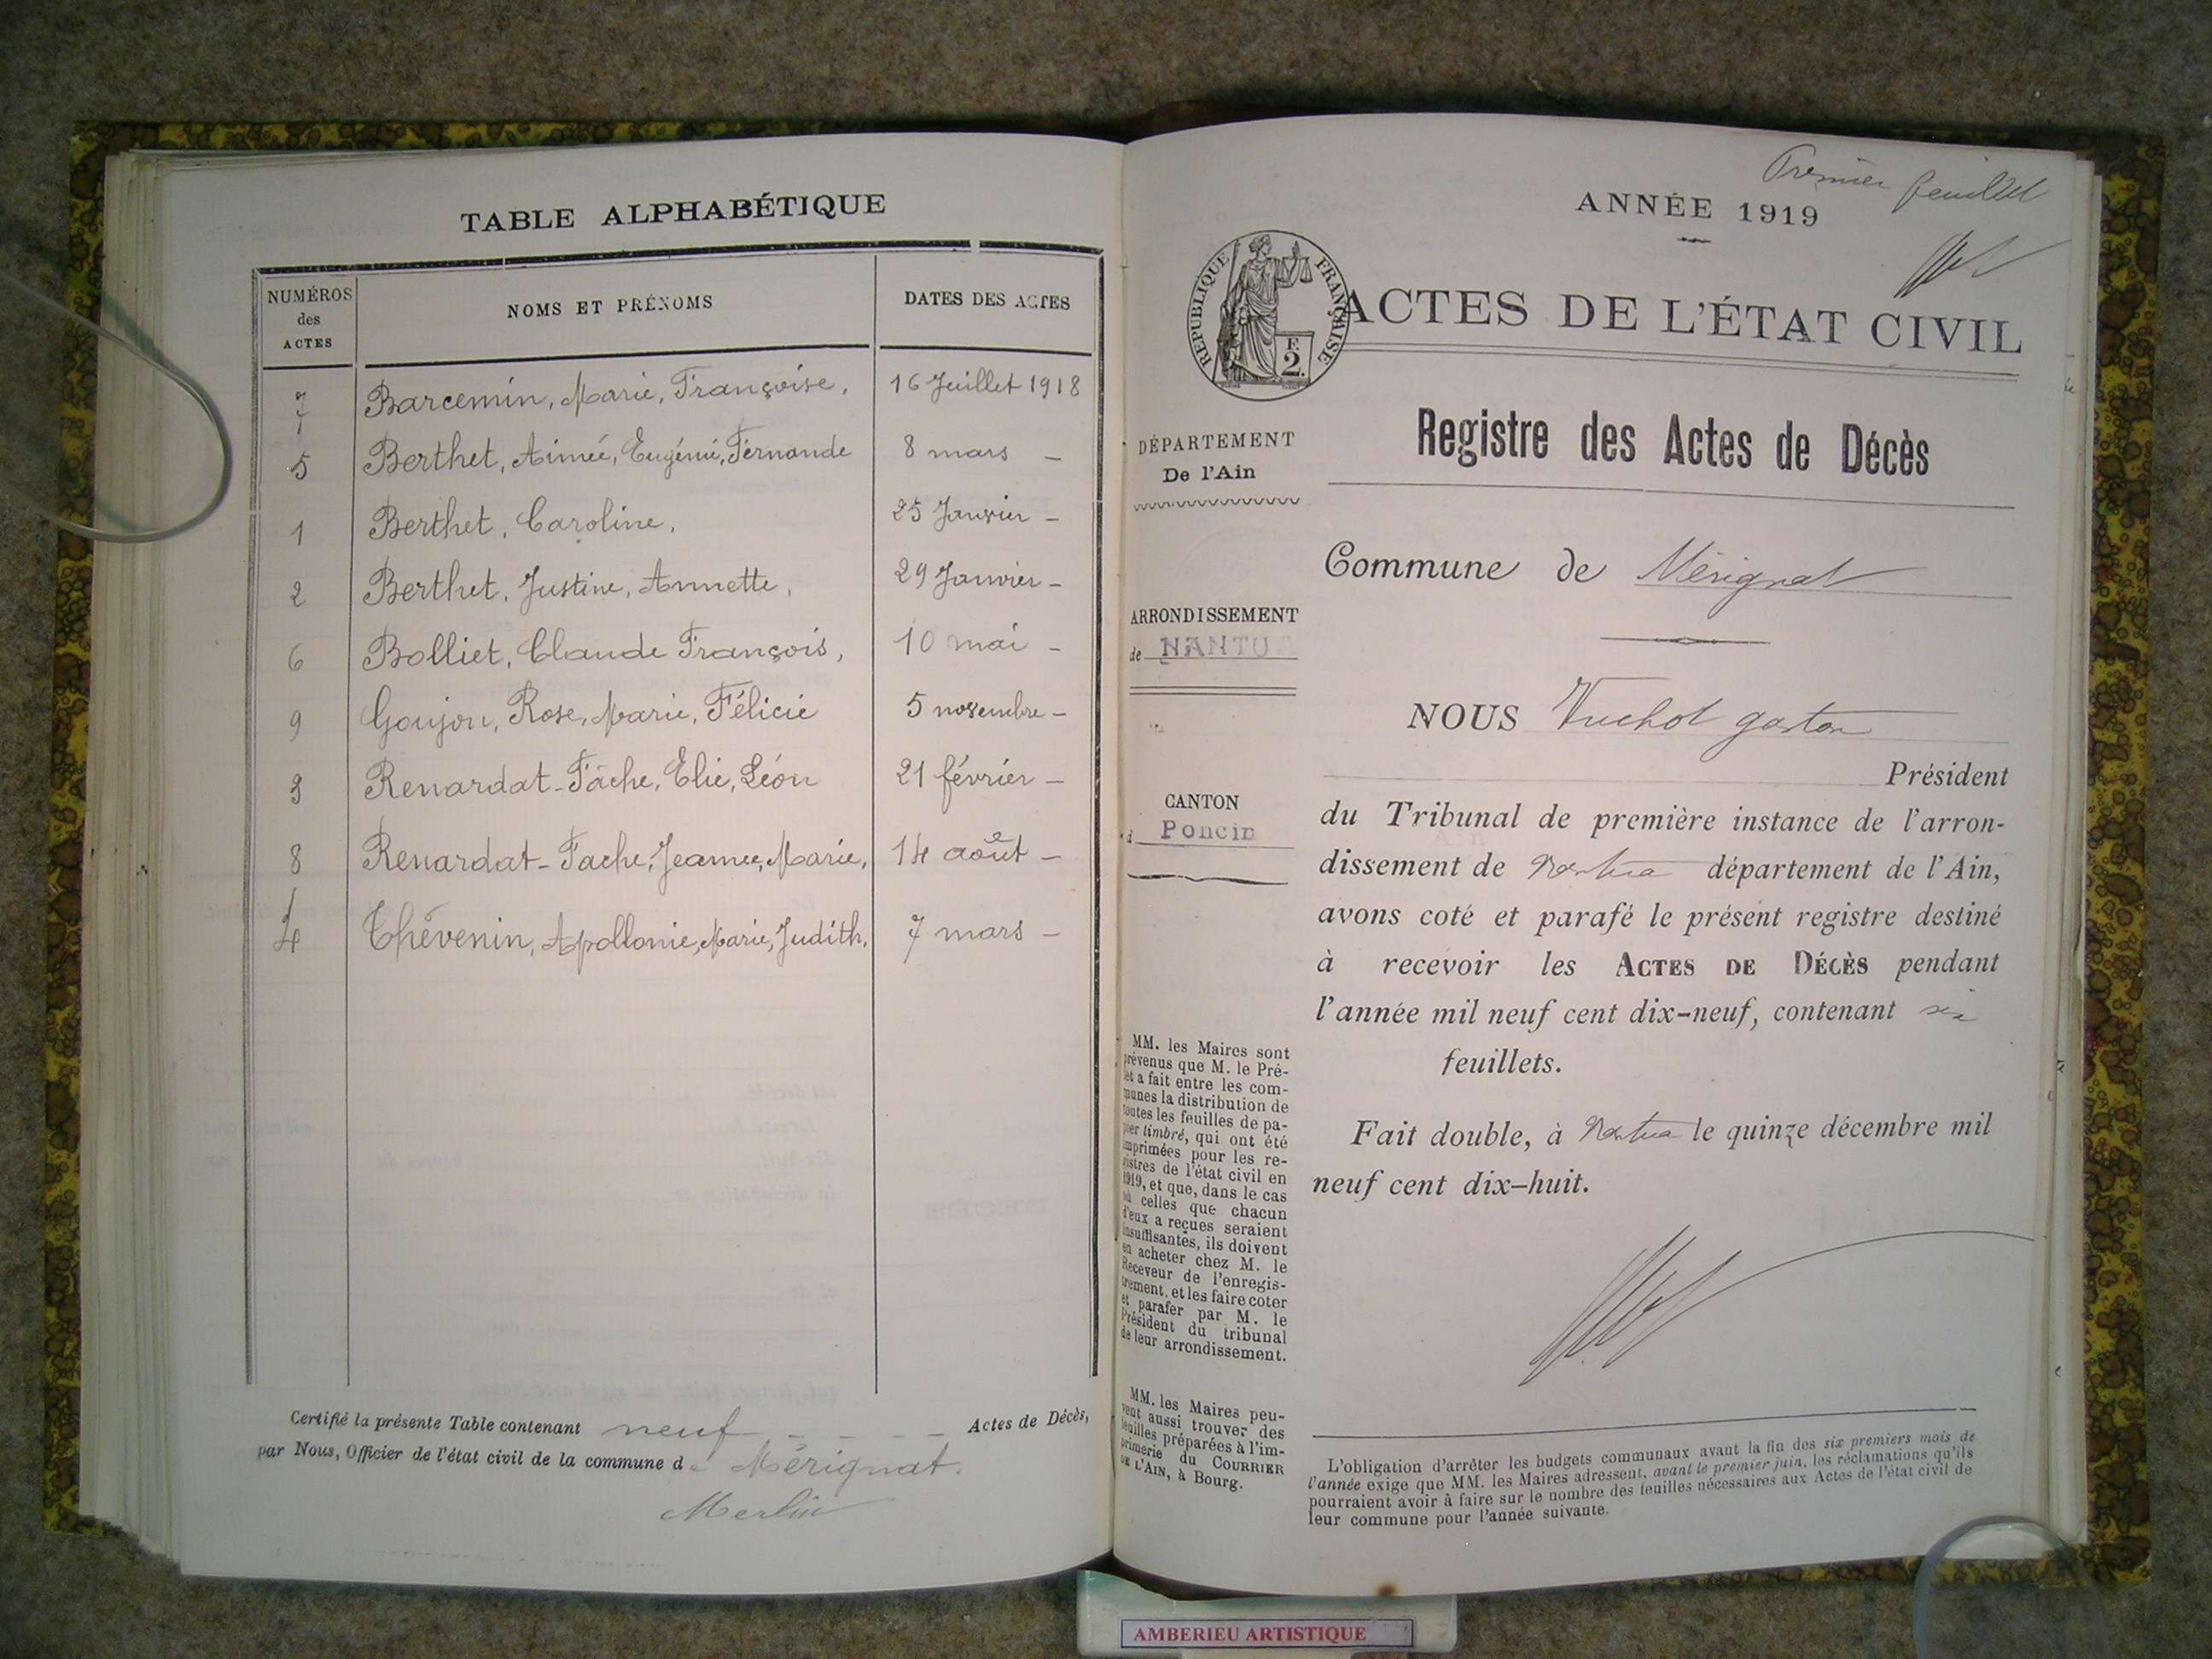 TABLE ALPHABÉTIQUE
NUMÉROS
des
ACTES
NOMS ET PRÉNOMS
DATES DES ACTES
7 Barcemin, Marie, Françoise, 16 Juillet 1918
5 Berthet, Aimée, Eugénie, Fernande 8 mars –
1 Berthet, Caroline, 25 Janvier –
2 Berthet, Justine, Annette, 29 Janvier –
6 Bolliet, Claude François, 10 mai –
9 Goujon, Rose, Marie, Félicie 5 novembre –
3 Renardat-Fâche, Elie, Léon 21 février –
8 Renardat-Fache, Jeanne, Marie, 14 août –
4 Thévenin, Apollonie, Marie, Judith, 7 mars –
Certifié la présente Table contenant neuf – – – – Actes de Décès,
par Nous, Officier de l'état civil de la commune de Mérignat.
Merlin
Premier feuillet
ANNÉE 1919
RÉPUBLIQUE FRANÇAISE
F.
2.
ACTES DE L'ÉTAT CIVIL
Registre des Actes de Décès
DÉPARTEMENT
De l'Ain
Commune de Mérignat
ARRONDISSEMENT
de NANTUA
NOUS Vuchot gaston
Président
CANTON
d Poncin
du Tribunal de première instance de l'arron-
dissement de Nantua département de l'Ain,
avons coté et parafé le présent registre destiné
à recevoir les ACTES DE DÉCÈS pendant
l'année mil neuf cent dix-neuf, contenant six
feuillets.
Fait double, à Nantua le quinze décembre mil
neuf cent dix-huit.
MM. les Maires sont
prévenus que M. le Pré-
fet a fait entre les com-
munes la distribution de
toutes les feuilles de pa-
pier timbré, qui ont été
imprimées pour les re-
gistres de l'état civil en
1919, et que, dans le cas
où celles que chacun
d'eux a reçues seraient
insuffisantes, ils doivent
en acheter chez M. le
Receveur de l'enregis-
trement, et les faire coter
et parafer par M. le
Président du tribunal
de leur arrondissement.
MM. les Maires peu-
vent aussi trouver des
feuilles préparées à l'im-
primerie du COURRIER
DE L'AIN, à Bourg.
L'obligation d'arrêter les budgets communaux avant la fin des six premiers mois de
l'année exige que MM. les Maires adressent, avant le premier juin, les réclamations qu'ils
pourraient avoir à faire sur le nombre des feuilles nécessaires aux Actes de l'état civil de
leur commune pour l'année suivante.
AMBERIEU ARTISTIQUE